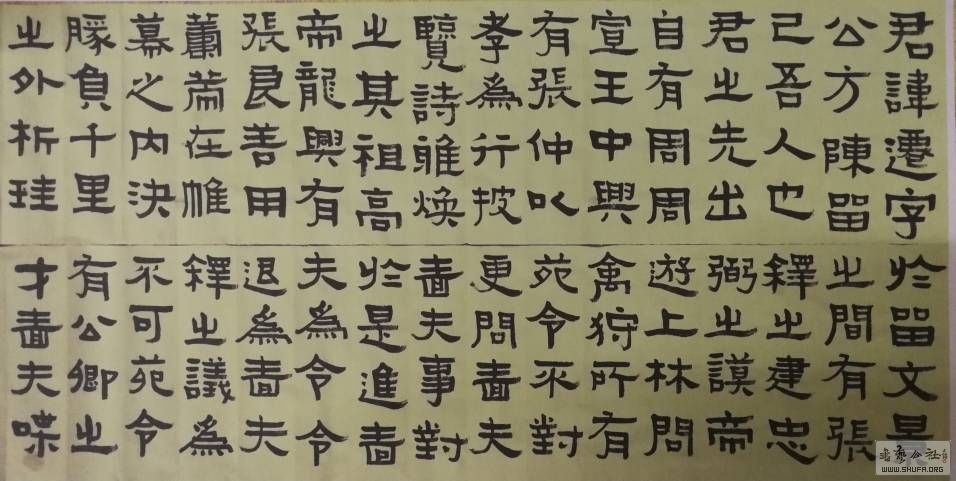 君諱遷字
公方陳留
己吾人也
君之先出
自有周周
宣王中興
有張仲以
孝為行披
覽詩雅煥
之其祖高
帝龍興有
張良善用
籌策在帷
幕之內決
勝負千里
之外析珪
於留文景
之間有張
釋之建忠
弼之謨帝
遊上林問
禽狩所有
苑令不對
更問嗇夫
嗇夫事對
於是進嗇
夫為令令
退為嗇夫
釋之議為
不可苑令
有公卿之
才嗇夫喋
WWW.SHUFA.ORG